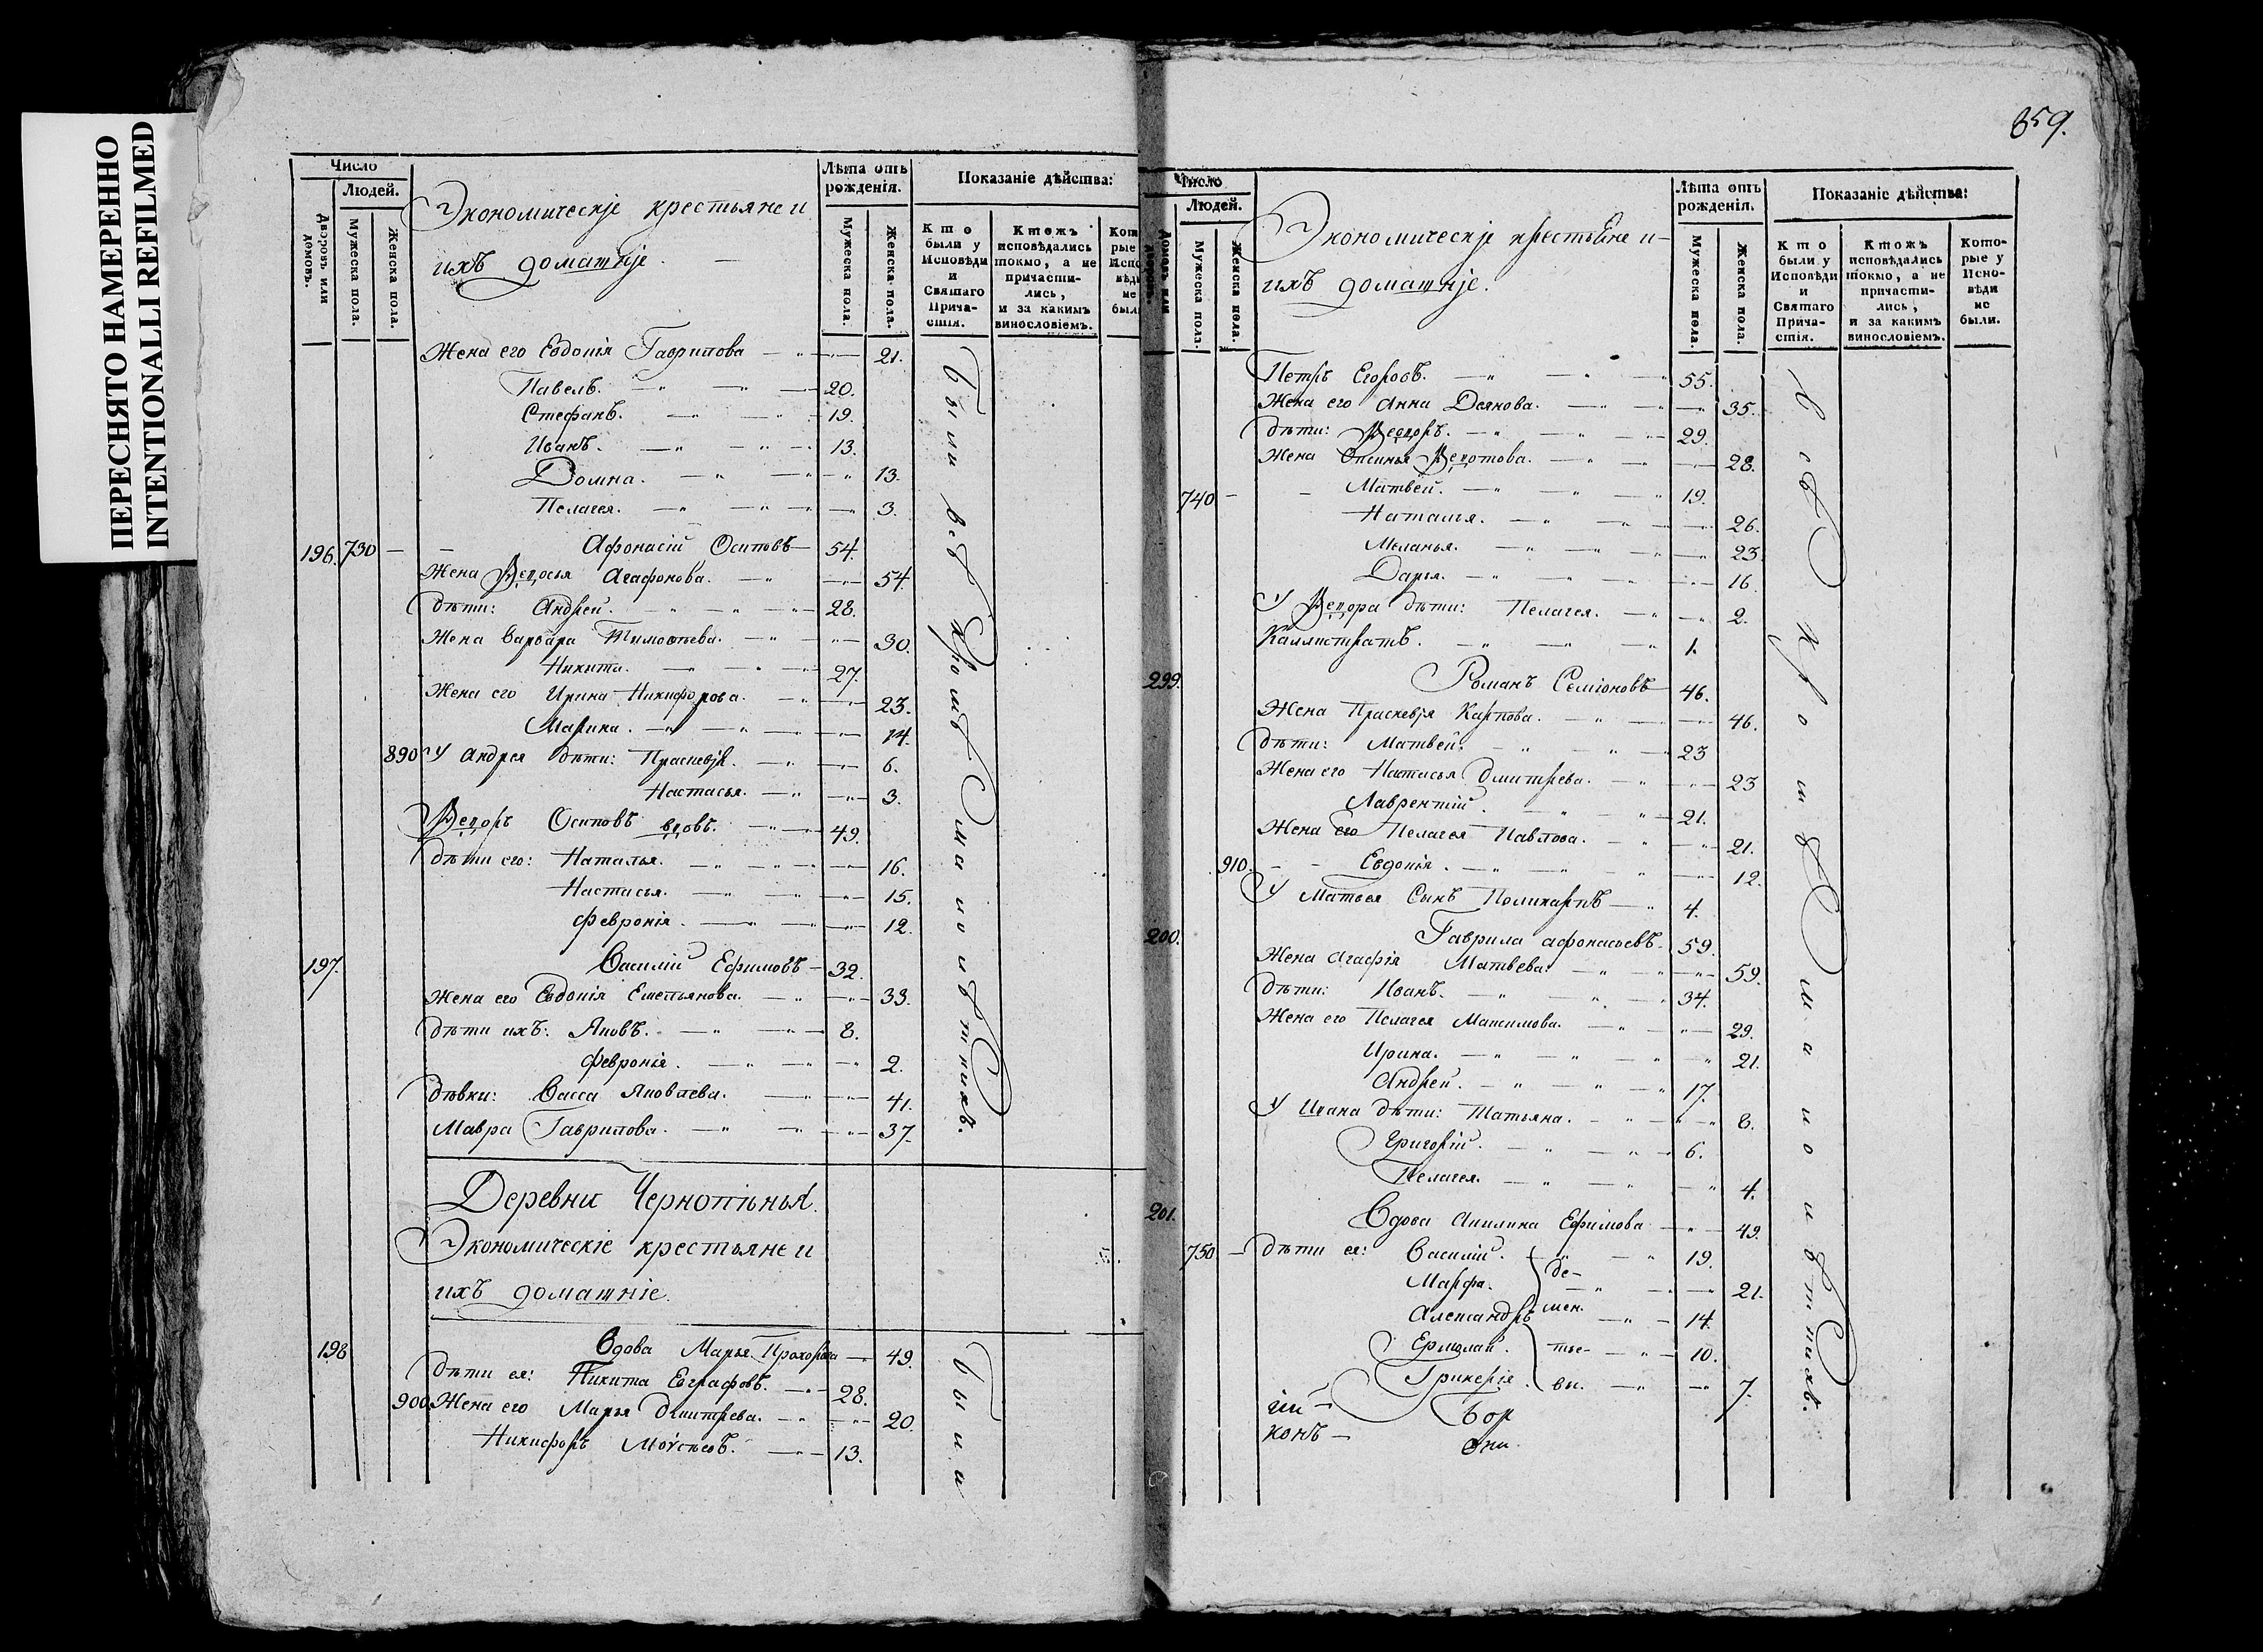 ПЕРЕСНЯТО НАМЕРЕННО
INTENTIONALLI REFILMED
Число
Людей.
Дворовъ или домовъ.
Мужеска пола.
Женска пола.
Экономическіе крестьяне и
ихъ домашніе.
Лѣта отъ рожденія.
Мужеска пола.
Женска пола.
Показаніе дѣйства:
Кто были у Исповѣди и Святаго Причастія.
Ктожъ исповѣдались токмо, а не причастились, и за какимъ винословіемъ.
Жена его Евдокія Гаврилова 21.
Павелъ. 20.
Стефанъ. 19.
Иванъ. 13.
Домна. 13.
Пелагея. 3.
196. 730 Афонасій Осиповъ 54.
Жена Ѳедосья Агафонова. 54.
Дѣти: Андрей. 28.
Жена Варвара Тимоѳеева. 30.
Никита. 27.
Жена его Ирина Никифорова. 23.
Марина. 14.
890 У Андрея дѣти: Праскевья. 6.
Настасья. 3.
Ѳедоръ Осиповъ вдовъ. 49.
Дѣти его: Наталья. 16.
Настасья. 15.
Февронія. 12.
197. Василій Ефимовъ 32.
Жена его Евдокія Емельянова. 33.
Дѣти ихъ: Яковъ. 8.
Февронія. 2.
Дѣвки: Васса Яковлева. 41.
Мавра Гаврилова. 37.
Были всѣ кромѣ малолѣтнихъ.
Деревни
Экономическіе крестьяне и
ихъ домашніе.
198 Вдова Марья Прохорова 49.
Дѣти ея: Никита Евграфовъ. 28.
900 Жена его Марья Дмитрева. 20.
Никифоръ Моѵсеевъ. 13.
Были
859.
Число
Людей.
Домовъ или дворовъ.
Мужеска пола.
Женска пола.
Экономическіе крестьяне и
ихъ домашніе.
Лѣта отъ рожденія.
Мужеска пола.
Женска пола.
Показаніе дѣйства:
Кто были у Исповѣди и Святаго Причастія.
Ктожъ исповѣдались токмо, а не причастились, и за какимъ винословіемъ.
Которые у Исповѣди не были.
Петръ Егоровъ. 55.
Жена его Анна Деянова. 35.
Дѣти: Ѳедоръ. 29.
Жена Ѳедотова. 28.
740 Матвей. 19.
Наталья. 26.
Меланья. 23.
Дарья. 16
У Ѳедора дѣти: Пелагея. 2.
Каллистратъ. 1.
299. Романъ Семіоновъ 46.
Жена Праскевья Карпова. 46.
Дѣти: Матвей. 23
Жена его Настасья Дмитрева. 23
Лаврентій. 21.
Жена его Пелагея Павлова. 21.
910. Евдокія. 12.
У Матвея Сынъ Поликарпъ 4.
200. Гаврила Афонасьевъ. 59.
Жена Агафія Матвѣева. 59.
Дѣти: Иванъ. 34.
Жена его Пелагея Максимова. 29.
Ирина. 21.
Андрей. 17.
У Ивана дѣти: Татьяна. 8.
Григорій. 6.
Пелагея. 4.
201. Вдова Акилина Ефимова 49.
750 Дѣти ея: Василій. 19.
Марфа. 21.
Александръ 14.
Ермолай. 10.
Гликерія. 7.
де-
мен.
тье-
вы.
всѣ кромѣ малолѣтнихъ.